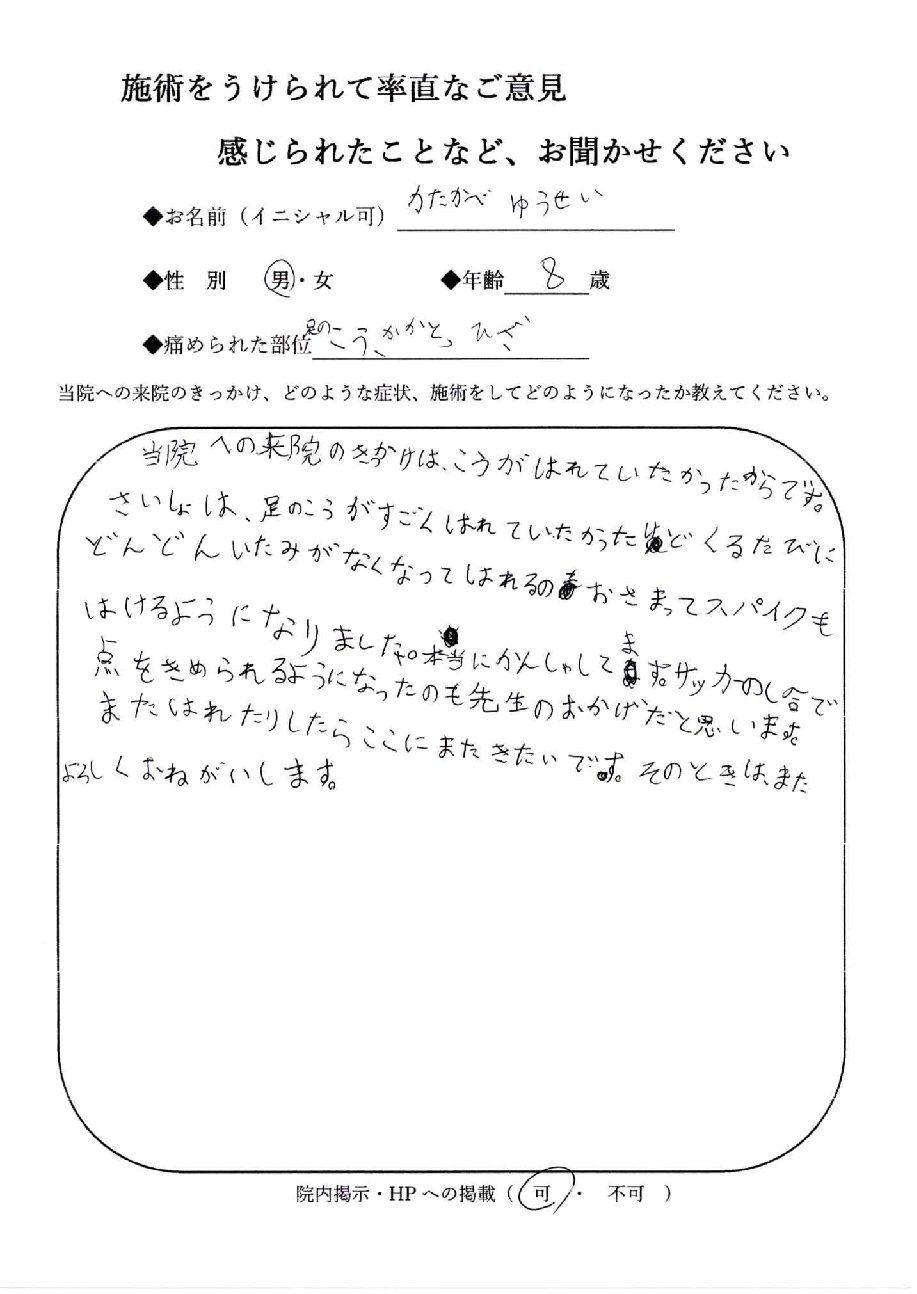 施術をうけられて率直なご意見
感じられたことなど、お聞かせください
◆お名前（イニシャル可） かたかべ ゆうせい
◆性 別 男・女 ◆年齢 8 歳
◆痛められた部位 足のこう、かかと、ひざ
当院への来院のきっかけ、どのような症状、施術をしてどのようになったか教えてください。
当院への来院のきっかけは、こうがはれていたかったからです。
さいしょは、足のこうがすごくはれていたかったけど くるたびに
どんどんいたみがなくなってはれるのもおさまってスパイクも
はけるようになりました。本当にかんしゃしてます。サッカーのし合で
点をきめられるようになったのも先生のおかげだと思います。
またはれたりしたらここにまたきたいです。そのときは、また
よろしくおねがいします。
院内掲示・HPへの掲載（ 可 ・ 不可 ）